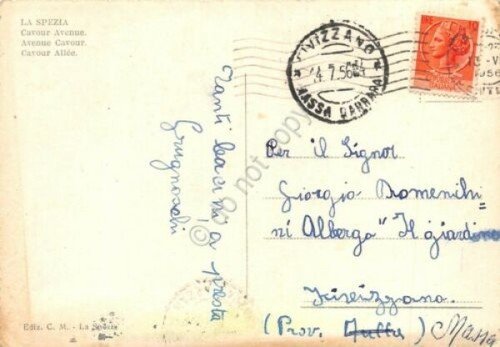 LA SPEZIA
Cavour Avenue.
Avenue Cavour.
Cavour Allée.
Tanti baci a presto
Grugnoschi
Ediz. C. M. - La Spezia
FIVIZZANO
14.7.56
MASSA CARRARA
Per il Signor
Giorgio Domenihi-
ni Albergo "Il giardino
Fivizzano
(Prov. Massa
do not copy